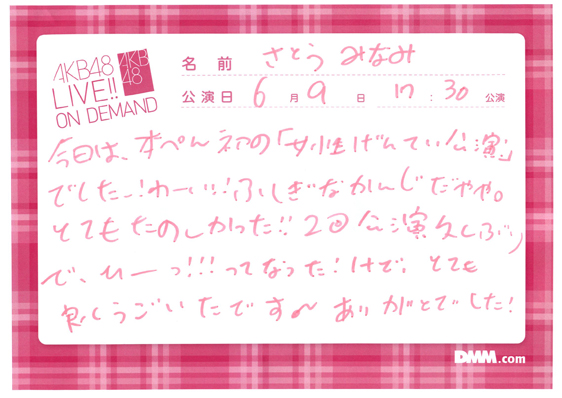 AKB48
LIVE!!
ON DEMAND
AKB
48
名前 さとう みなみ
公演日 6月9日 17:30 公演
今日は、ずぺん初の「女性げんてい公演」
でしたー!わーい!!ふしぎなかんじだやや。
とてもたのしかった!!2回公演久しぶり
で、ひーっ!!!ってなった!けど。とても
良くうごいたです〜ありがとでした!
DMM.com